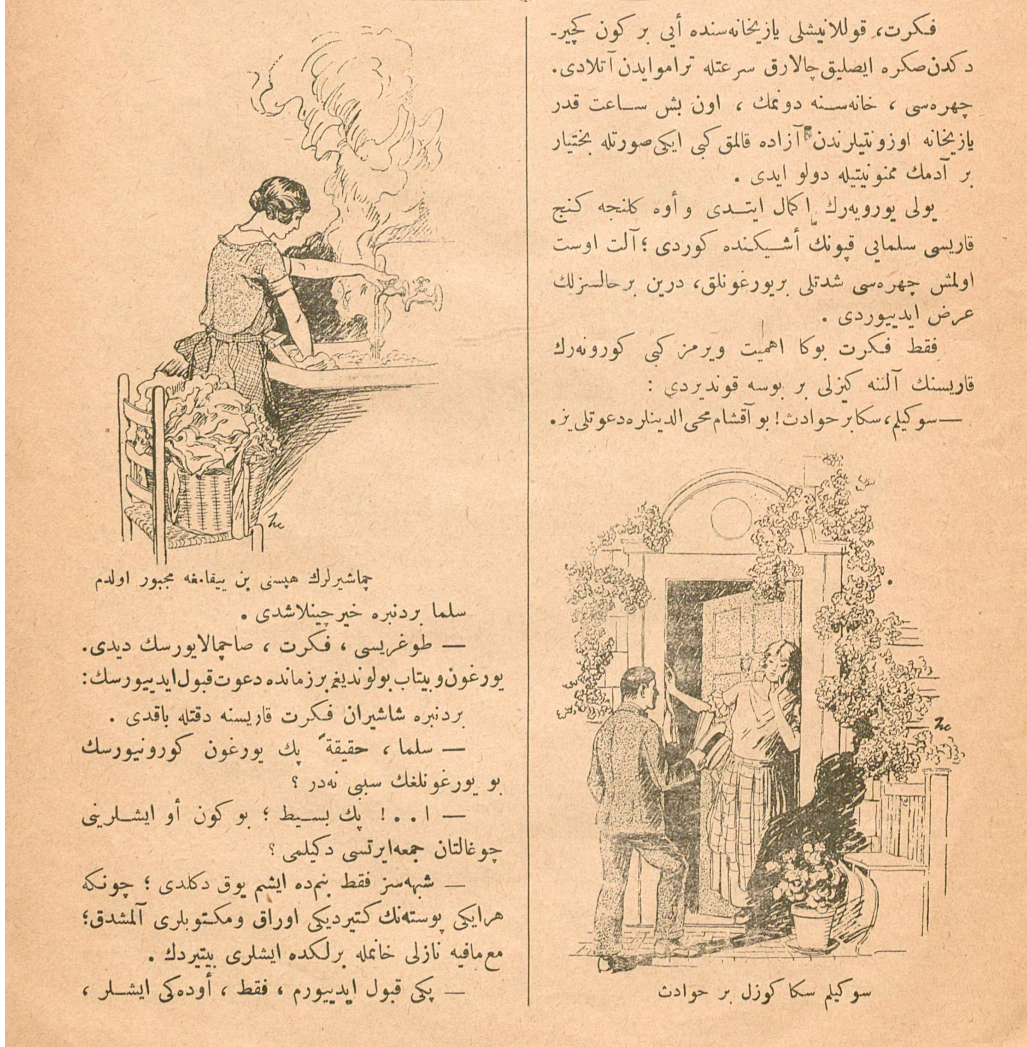 فكرت، قوللانيشلى يازيخانه‌سنده أيى بر كون كچير-
دكدن صكره ايصليق چالارق سرعتله تراموايدن آتلادى.
چهره‌سى ، خانه‌سنه دونمك ، اون بش ساعت قدر
يازيخانه اوزونتيلرندن آزاده قالمق كبى ايكى صورتله بختيار
بر آدمك ممنونيتيله دولو ايدى .
يولى يورويه‌رك اكمال ايتدى و أوه كلنجه كنج
قاريسى سلمايى قپونك أشيكنده كوردى ؛ آلت اوست
اولمش چهره‌سى شدتلى بريورغونلق، درين بر حالسزلك
عرض ايدييوردى .
فقط فكرت بوكا اهميت ويرمز كبى كورونه‌رك
قاريسنك آلننه كيزلى بر بوسه قونديردى :
— سوكيلم، سكا بر حوادث! بو آقشام محى الدينلره دعوتلى يز.
سوكيلم سكا كوزل بر حوادث
چماشيرلرك هپسى بن ييقامغه مجبور اولدم
سلما بردنبره خيرچينلاشدى .
— طوغريسى ، فكرت ، صاچمالايورسك ديدى.
يورغون و بيتاب بولونديغم بر زمانده دعوت قبول ايدييورسك:
بردنبره شاشيران فكرت قاريسنه دقتله باقدى .
— سلما ، حقيقةً پك يورغون كورونيورسك
بو يورغونلغك سببى نه‌در ؟
— ا . . ! پك بسيط ؛ بو كون أو ايشلرينى
چوغالتان جمعه‌ايرتسى دكيلمى ؟
— شبهه‌سز فقط بنم‌ده ايشم يوق دكلدى ؛ چونكه
هر ايكى پوسته‌نك كتيرديكى اوراق ومكتوبلرى آلمشدق؛
مع‌مافيه نازلى خانمله برلكده ايشلرى بيتيردك .
— پكى قبول ايدييورم ، فقط ، أوده‌كى ايشلر ،